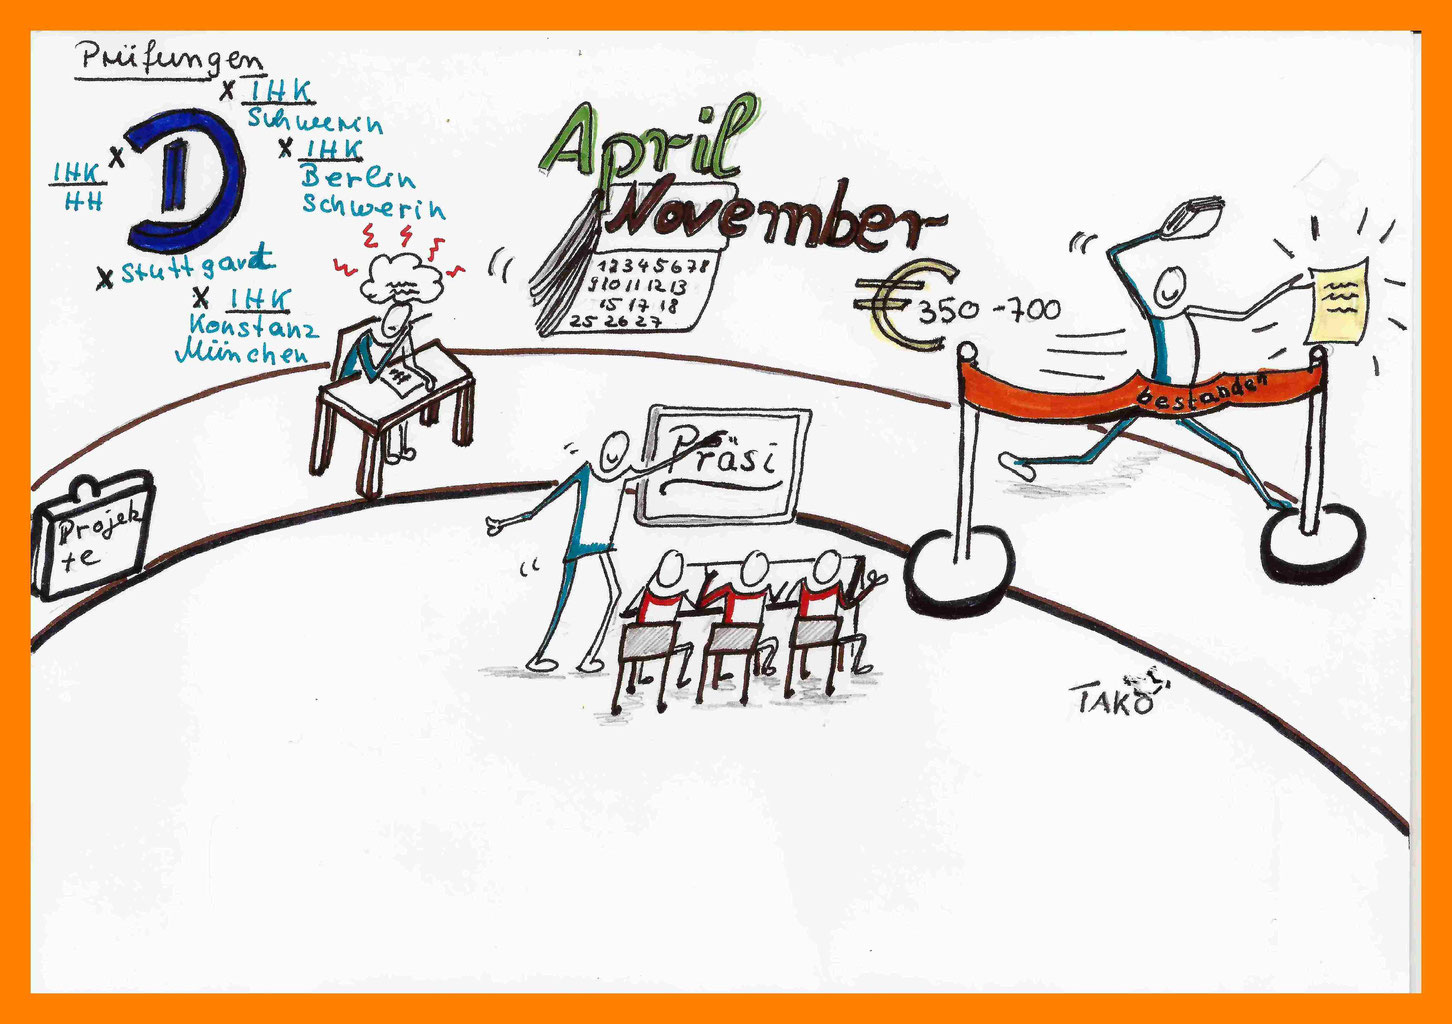 Prüfungen
x IHK
Schwerin
x IHK
Berlin
Schwerin
IHK x
HH
D
x Stuttgart
x IHK
Konstanz
München
April
November
12345678
910 11 12 13
15 17 18
25 26 27
€ 350 - 700
bestanden
Projek
te
Präsi
TAKO